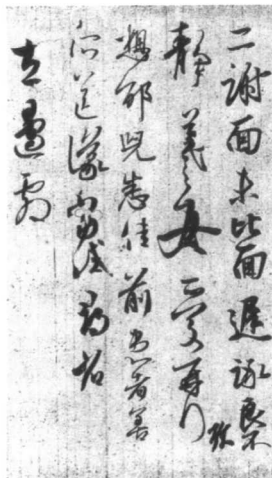 二謝面未比面遲詠良不
靜羲之女愛再拜
想邰兒悉佳前患者善
所送議當試尋省
左邊劇